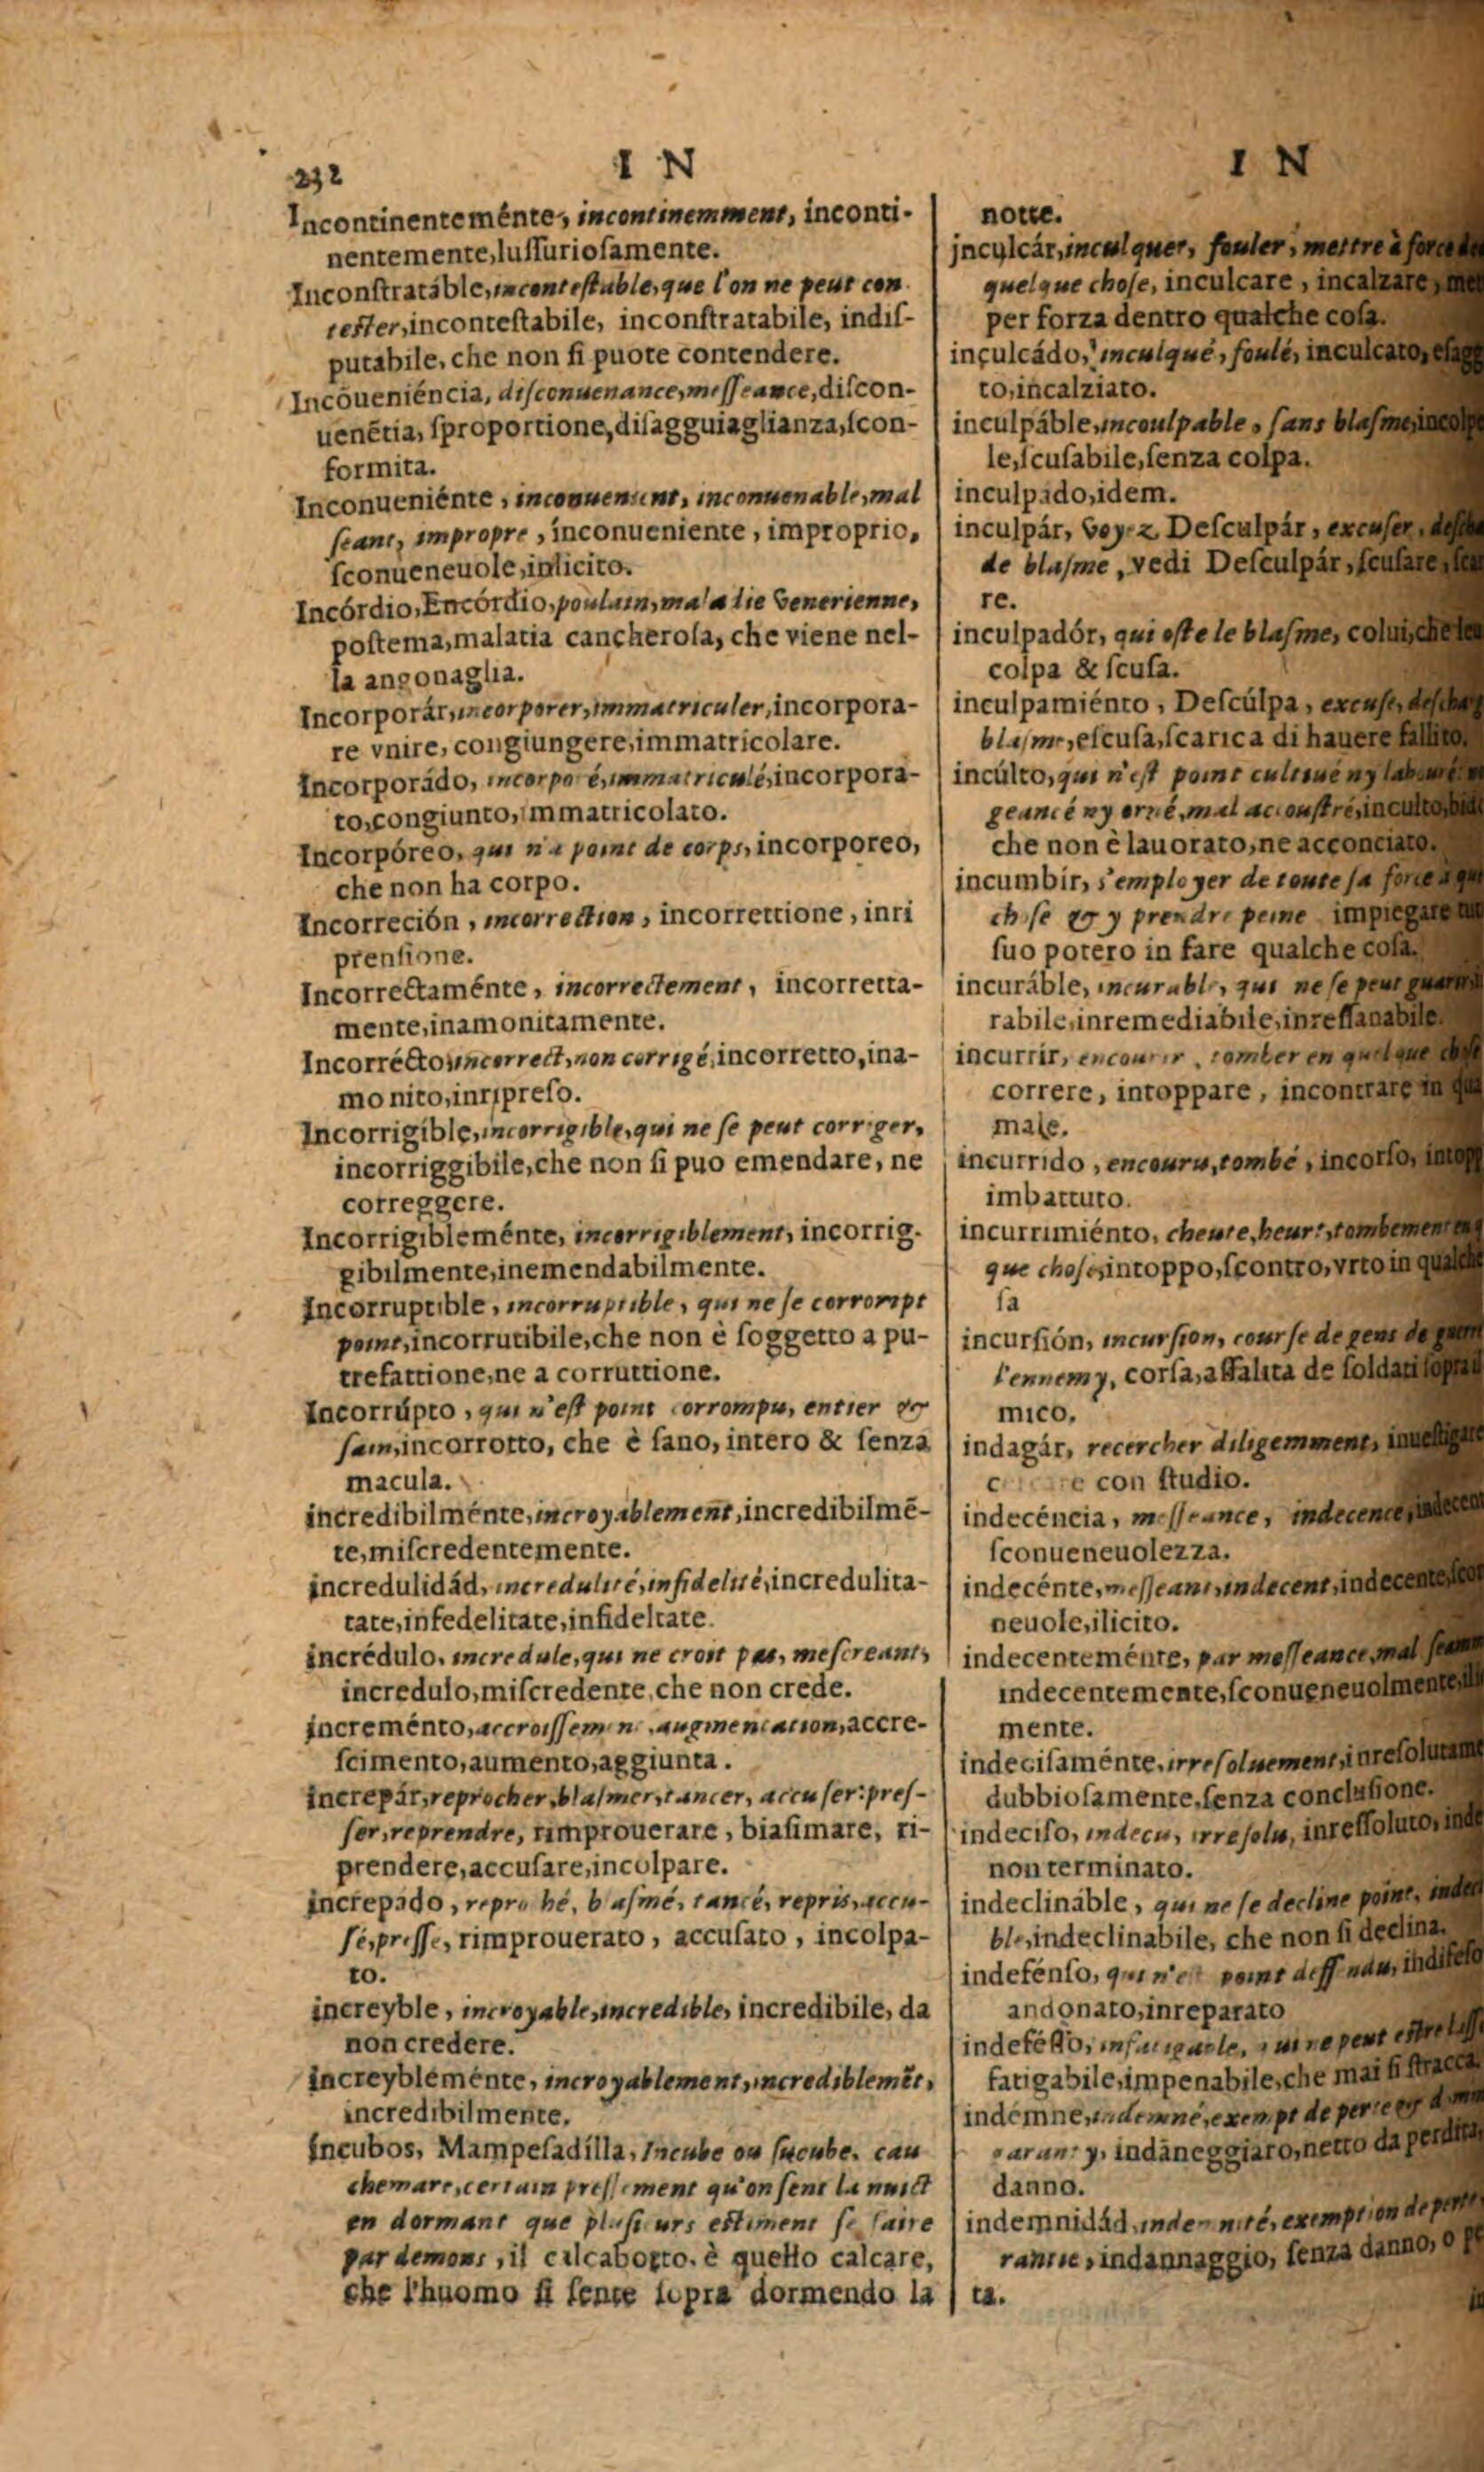 232
I N
Incontinenteménte, incontinemment, inconti-
nentemente,luſſurioſamente.
Inconſtratáble,incontestable,que l'on ne peut con
teſter,inconteſtabile, inconſtratabile, indiſ-
putabile, che non ſi puote contendere.
Incōueniéncia, diſconuenance,meſſeance,diſcon-
uenētia, ſproportione,diſagguiaglianza,ſcon-
formita.
Inconueniénte, inconuenient, inconuenable,mal
ſeant, impropre, inconueniente, improprio,
ſconueneuole,inlicito.
Incórdio,Encórdio,poulain,maladie Venerienne,
poſtema,malatia cancheroſa, che viene nel-
la angonaglia.
Incorporár,incorporer,immatriculer,incorpora-
re vnire, congiungere,immatricolare.
Incorporádo, incorporé,immatriculé,incorpora-
to,congiunto,immatricolato.
Incorpóreo, qui n'a point de corps, incorporeo,
che non ha corpo.
Incorreción, incorrection, incorrettione, inri
prenſione.
Incorrectaménte, incorrectement, incorretta-
mente,inamonitamente.
Incorrécto,incorrect,non corrigé,incorretto,ina-
monito,inripreſo.
Incorrigible,incorrigible,qui ne ſe peut corriger,
incorriggibile,che non ſi puo emendare, ne
correggere.
Incorrigibleménte, incorrigiblement, incorrig-
gibilmente,inemendabilmente.
Incorruptible, incorruptible, qui ne ſe corrompt
point,incorrutibile,che non è ſoggetto a pu-
trefattione,ne a corruttione.
Incorrúpto, qui n'eſt point corrompu, entier &
ſain,incorrotto, che è ſano, intero & ſenza
macula.
incredibilménte,incroyablement,incredibilmē-
te,miſcredentemente.
incredulidád, incredulité,infidelité,incredulita-
tate,infedelitate,infideltate.
incrédulo, incredule,qui ne croit pas, meſcreant,
incredulo,miſcredente,che non crede.
increménto,accroiſſement,augmentation,accre-
ſcimento,aumento,aggiunta.
increpár,reprocher,blaſmer,tancer, accuſer:preſ-
ſer,reprendre, rimprouerare, biaſimare, ri-
prendere,accuſare,incolpare.
increpádo, reproché, blaſmé, tancé, repris,accu-
ſé,preſſé, rimprouerato, accuſato, incolpa-
to.
increyble, incroyable,incredible, incredibile, da
non credere.
increybleménte, incroyablement,incrediblemēt,
incredibilmente.
íncubos, Mampeſadílla, Incube ou ſucube, cau
chemare,certain preſſement qu'on ſent la nuict
en dormant que pluſieurs eſtiment ſe faire
par demons, il calcabotto, è quello calcare,
che l'huomo ſi ſente ſopra dormendo la
I N
notte.
inculcár,inculquer, fouler, mettre à force de
quelque choſe, inculcare, incalzare,
per forza dentro qualche coſa.
inculcádo, inculqué, foulé, inculcato,
to,incalziato.
inculpáble,incoulpable, ſans blaſme,
le,ſcuſabile,ſenza colpa.
inculpado,idem.
inculpár, Voyez Deſculpár, excuſer,
de blaſme, vedi Deſculpár, ſcuſare,
re.
inculpadór, qui oſte le blaſme, colui,che
colpa & ſcuſa.
inculpamiénto, Deſcúlpa, excuſe,
blaſme,eſcuſa,ſcarica di hauere fallito.
incúlto,qui n'eſt point cultiué ny labouré
geancé ny orné,mal accouſtré,inculto,
che non è lauorato,ne acconciato.
incumbir, s'employer de toute ſa force à
choſe & y prendre peine impiegare
ſuo potero in fare qualche coſa.
incuráble, incurable, qui ne ſe peut guarir,
rabile,inremediabile,inreſſanabile.
incurrir, encourir, tomber en quelque choſe
correre, intoppare, incontrare in
male.
incurrido, encouru,tombé, incorſo,
imbattuto.
incurrimiénto, cheute,heurt,tombement en
que choſe,intoppo,ſcontro,vrto in qualche
ſa
incurſión, incurſion, courſe de gens de
l'ennemy, corſa,aſſalita de ſoldati ſopra
mico.
indagár, recercher diligemment, inueſtigare
con ſtudio.
indecéncia, meſſeance, indecence,
ſconueneuolezza.
indecénte,meſſeant,indecent,indecente,
neuole,ilicito.
indecenteménte, par meſſeance,mal
indecentemente,ſconueneuolmente,
mente.
indeciſaménte,irreſoluement,
dubbioſamente,ſenza concluſione.
indeciſo, indecis, irreſolu, inreſſoluto,
non terminato.
indeclináble, qui ne ſe decline point,
ble,indeclinabile, che non ſi declina.
indefénſo, qui n'eſt point deffendu,
andonato,inreparato
indeféſſo, infatigable, qui ne peut eſtre
fatigabile,impenabile,che mai ſi ſtracca.
indémne,indemné,exempt de perte &
garanty, indāneggiaro,netto da perdita,
danno.
indemnidád,indemnité, exemption de
rantie, indannaggio, ſenza danno, o
ta.